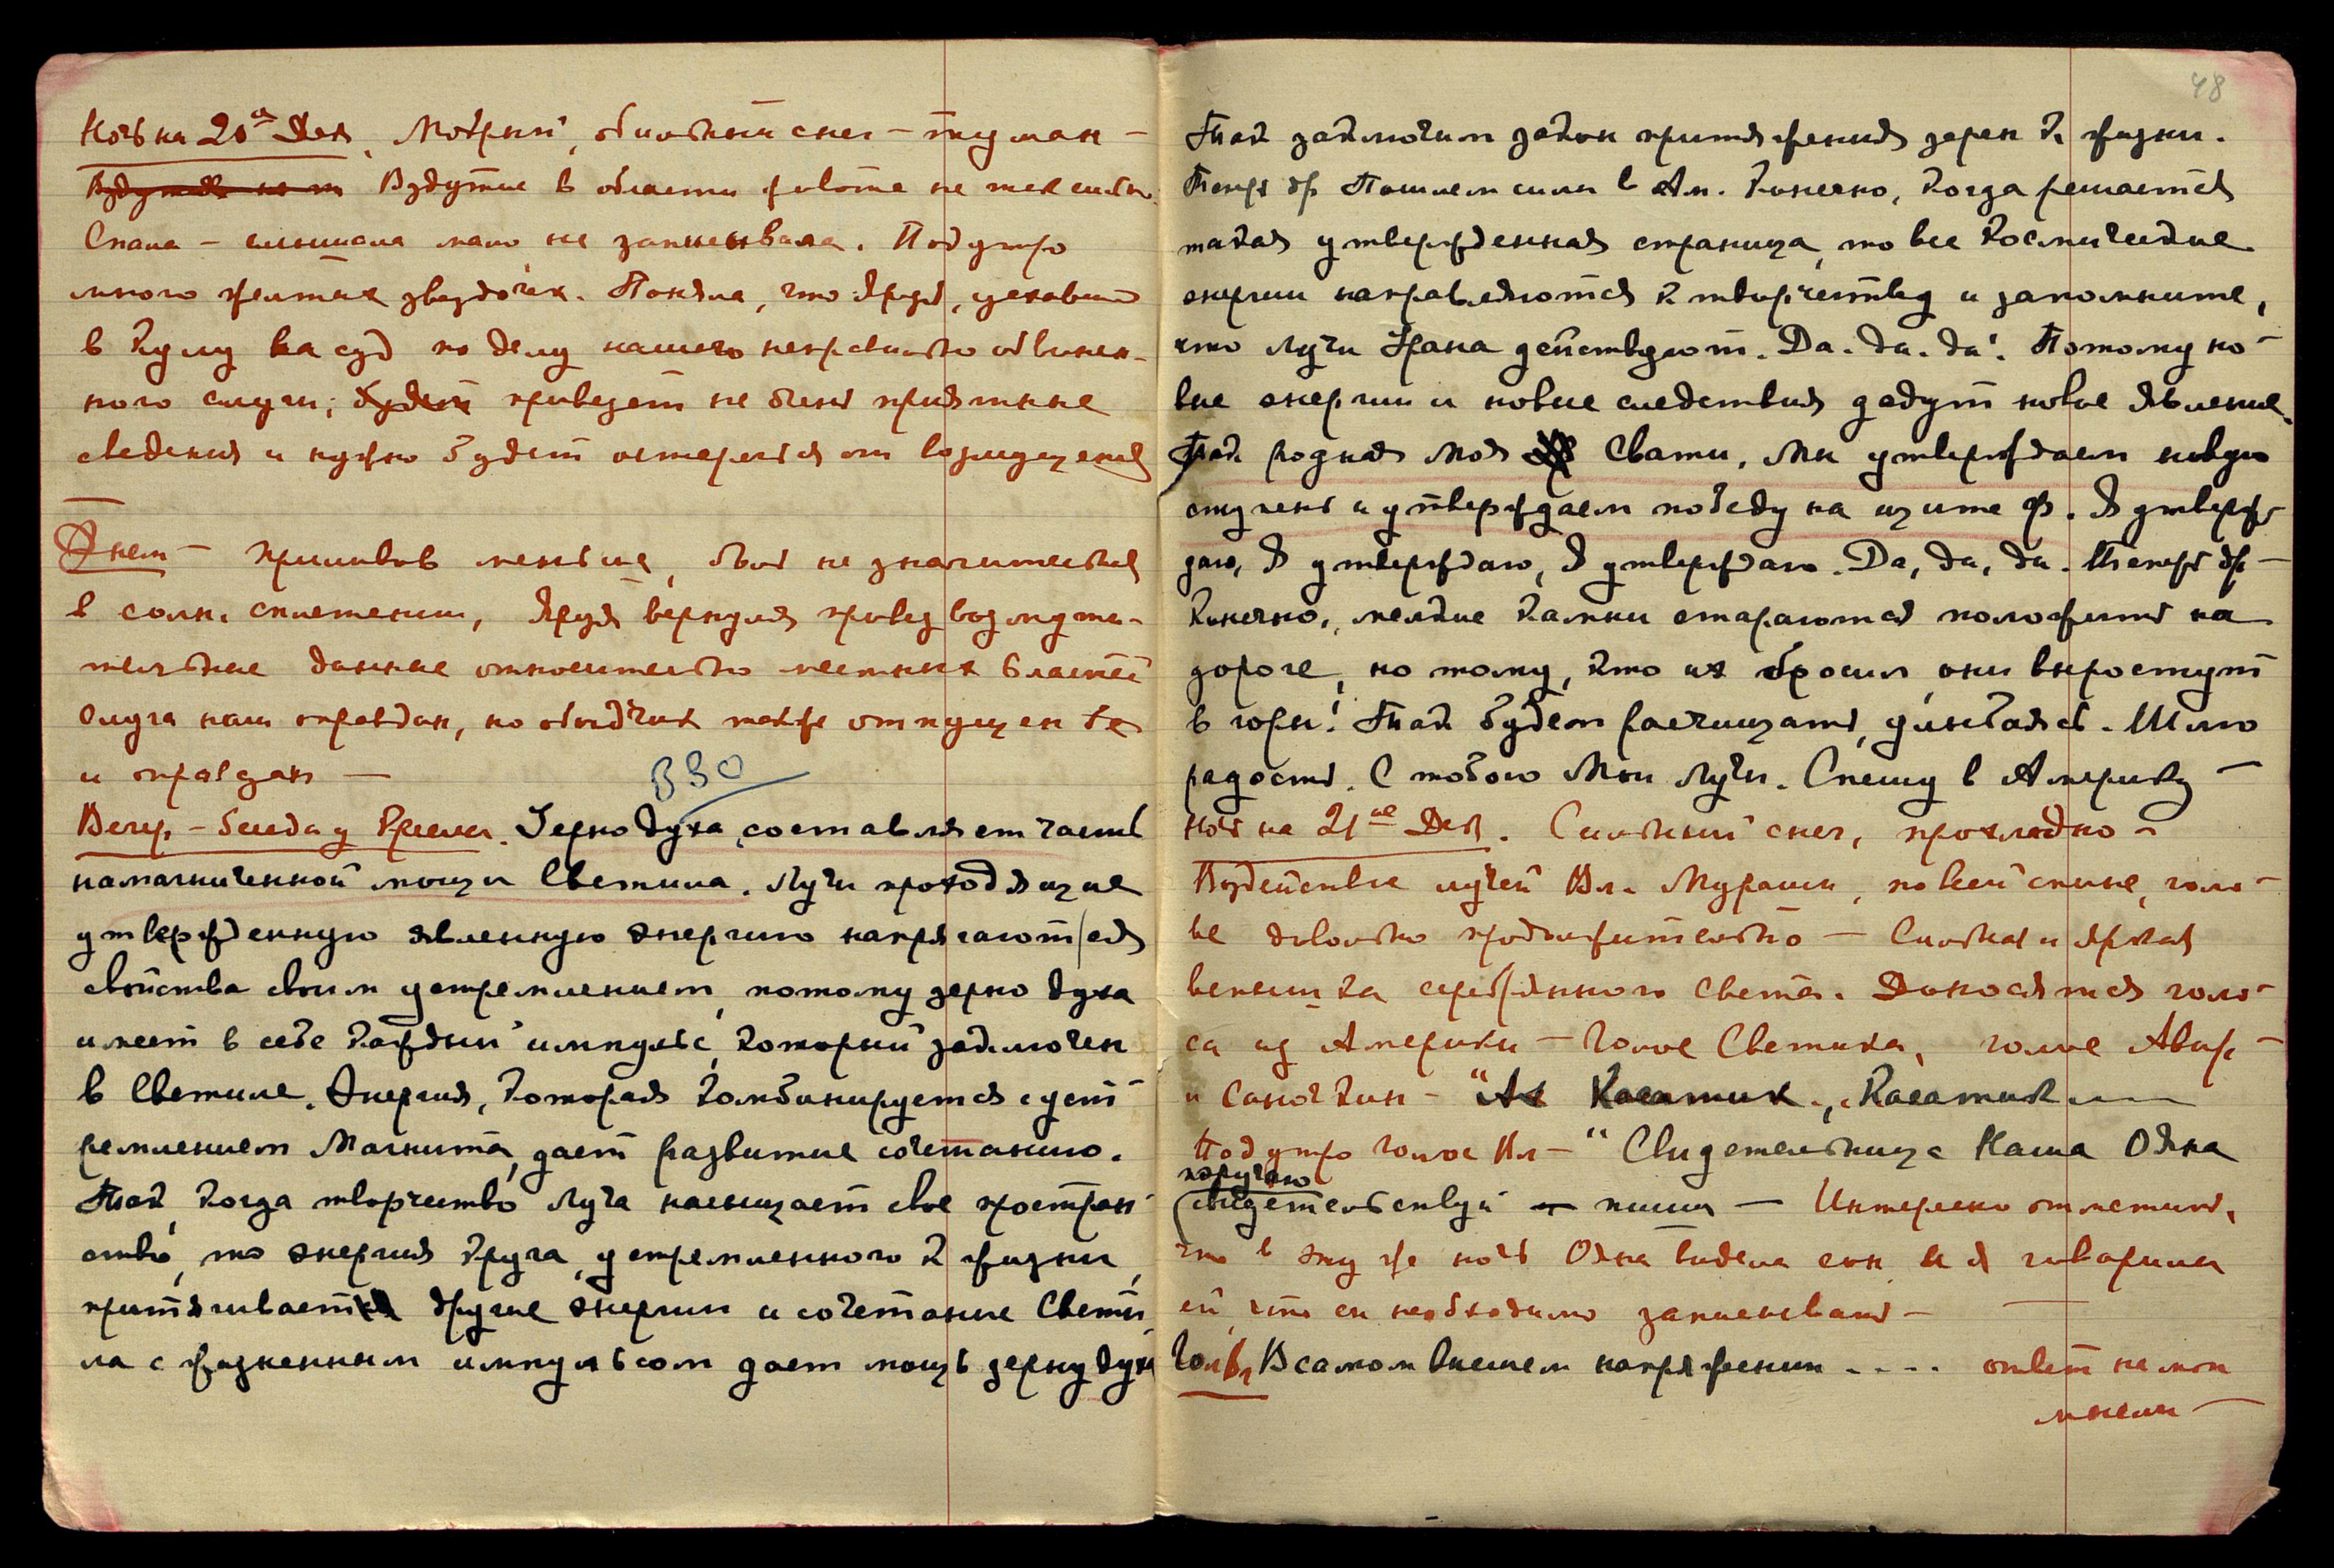 Ночь на 20ое Дек. Мокрый, обильный снег – туман –
Вздутие в области живота не так сильно.
Спала – слышала мало, не записывала. Под утро
много желтых звездочек. Поняла, что Яруя, уехавший
в Кулу на суд по делу нашего неправильно обвинен-
ного слуги, привезет не очень приятные
сведения и нужно будет остерегаться от возмущения
Днем – приливов меньше, боли не значительные
в солн. сплетении, Яруя вернулся привез возмути-
тельные данные относительно местных властей
слуга наш оправдан, но обидчик также отпущен
и оправдан —
830
Вечер. – беседа у Кресла. Зерно духа составляет часть
намагниченной мощи Светила. Лучи проходящие
утвержденную явленную энергию напрягают
свойства своим устремлением, потому зерно духа
имеет в себе каждый импульс, который заключен
в Светиле. Энергия, которая комбинируется с уст-
ремлением Магнита, дает развитие сочетанию.
Так, когда творчество Луча насыщает свое простран-
ство, то энергия друга, устремленного к жизни,
притягивает другие энергии и сочетание Свети-
ла с жизненным импульсом дает мощь зерну духа
48
Так заключим закон притяжения зерен к жизни.
Теперь др. Пошлем силы в Ам. Конечно, когда решается
такая утвержденная страница, то все космические
энергии направляются к творчеству и запомните,
что лучи Урана действуют. Да. да. да! Потому но-
вые энергии и новые следствия дадут новое явление.
Так родная моя Свати, мы утверждаем новую
ступень и утверждаем победу на щите Ф. Я утверж-
даю, Я утверждаю, Я утверждаю. Да, да, да. Теперь др –
Конечно, мелкие камни стараются положить на
дороге, но тому, кто их бросил, они вырастут
в горы! Так будем расчищать, улыбаясь. Шлю
радость. С тобою Мои Лучи. Спешу в Америку –
Ночь на 21ое Дек. Сильный снег, прохладно –
Воздействие лучей Вл. Мурашки, по всей спине, голо-
ве довольно продолжительно – Сильная и яркая
вспышка серебрянного света. Доносятся голо-
са из Америки – Голос Светика, голос Авир –
и Саночкин – "Ах Касатик, Касатик —
Под утро голос Вл – "Свидетельница Наша Ояна
поручаю
свидетельствуй пиши – Интересно отметить,
что в эту же ночь Ояна видела сон и я говорила
ей, что ей необходимо записывать –
Гол. Вл. В самом высшем напряжении . . . . ответ на мои
мысли –